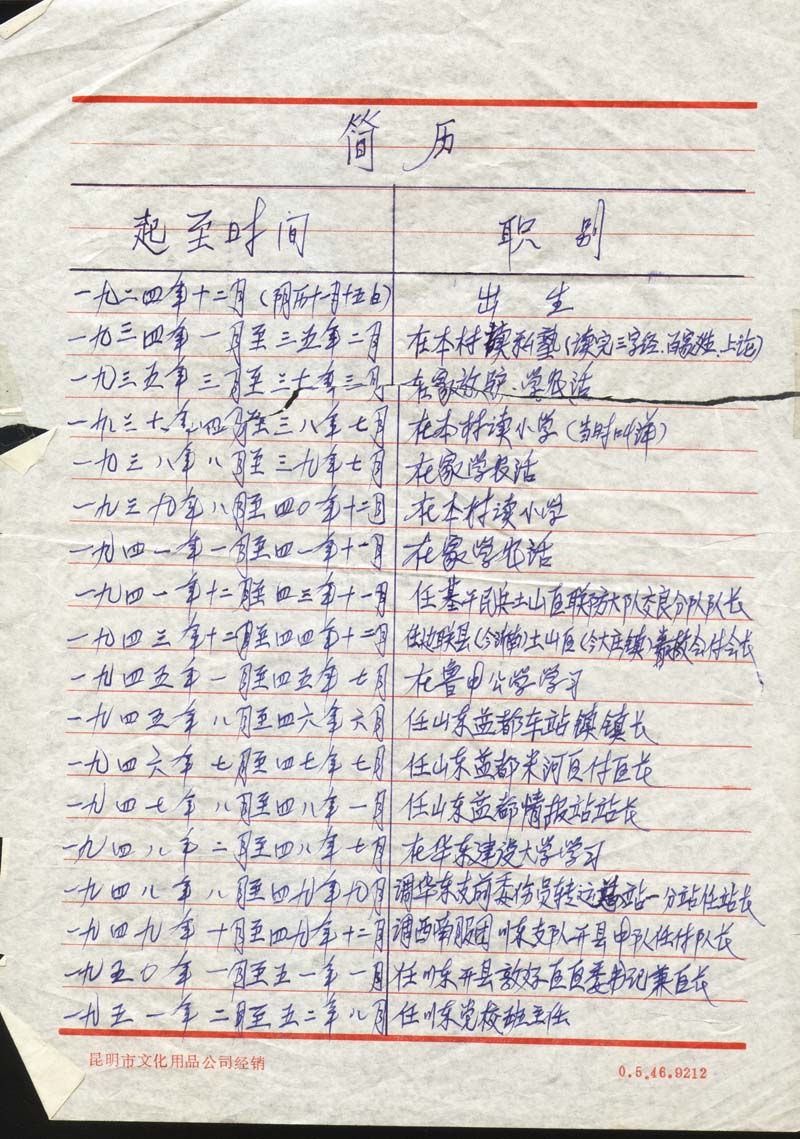 简历
起至时间 职别
一九二四年十二月(阴历十一月十五日) 出生
一九三四年一月至三五年二月 在本村读私塾(读完三字经、百家姓、上论)
一九三五年三月至三十六年三月 在家放驴、学农活
一九三六年四月至三八年七月 在本村读小学(当时叫洋)
一九三八年八月至三九年七月 在家学农活
一九三九年八月至四〇年十二月 在本村读小学
一九四一年一月至四一年十一月 在家学农活
一九四一年十二月至四三年十一月 任基干民兵土山区联防大队杏良分队队长
一九四三年十二月至四四年十二月 任边联县(今沂南)土山区(今大庄镇)农救会付会长
一九四五年一月至四五年七月 在鲁中公学学习
一九四五年八月至四六年六月 任山东益都车站镇镇长
一九四六年七月至四七年七月 任山东益都米河区付区长
一九四七年八月至四八年一月 任山东益都情报站站长
一九四八年二月至四八年七月 在华东建设大学学习
一九四八年八月至四九年九月 调华东支前委伤员转运总站一分站任站长
一九四九年十月至四九年十二月 调西南服团川东支队开县中队任付队长
一九五〇年一月至五一年一月 任川东开县敦好区区委书记兼区长
一九五一年二月至五二年八月 任川东党校班主任
昆明市文化用品公司经销 0.5.46.9212